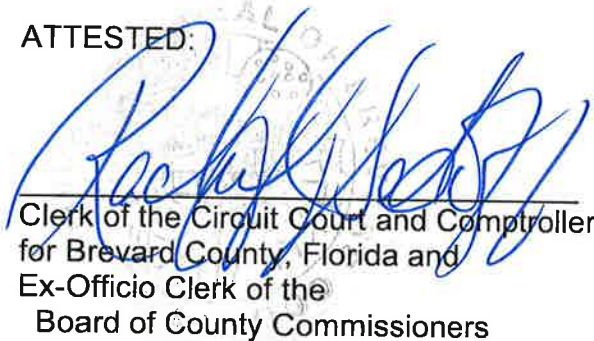 ATTESTED:
Clerk of the Circuit Court and Comptroller
for Brevard County, Florida and
Ex-Officio Clerk of the
Board of County Commissioners